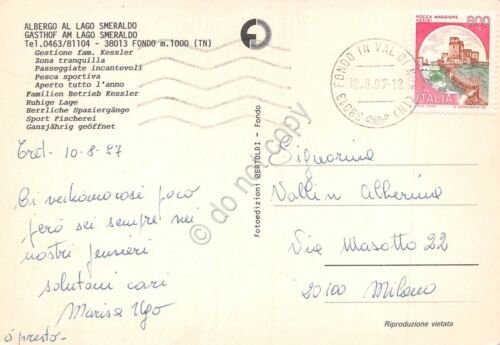 ALBERGO AL LAGO SMERALDO
GASTHOF AM LAGO SMERALDO
Tel.0463/81104 - 38013 FONDO m.1000 (TN)
Gestione fam. Kessler
Zona tranquilla
Passeggiate incantevoli
Pesca sportiva
Aperto tutto l'anno
Familien Betrieb Kessler
Ruhige Lage
Herrliche Spaziergänge
Sport Fischerei
Ganzjährig geöffnet
10-8-97
Ci vediamo così poco
però sei sempre nei
nostri pensieri
saluti cari
Marisa Ugo
a presto-
Fotoedizioni BERTOLDI - Fondo
ROCCA MAGGIORE
ASSISI
800
ITALIA
38013 FONDO IN VAL DI
12.8.97-12
(TN)
Signorina
Vallin Albertina
Via Masotto 22
20100 Milano
Riproduzione vietata
do not copy